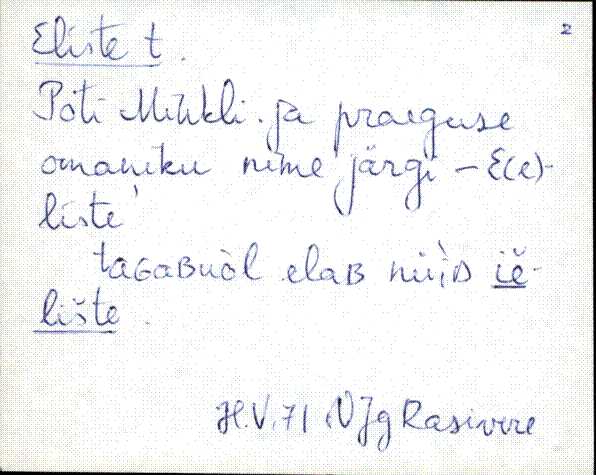 2
Eliste t.
Pöti Mihkli ja praeguse
omaniku nime järgi – E(e)-
liste
taGaBuòl elaB nüìD iè-
lište.
H.V.71 VJg Rasivere